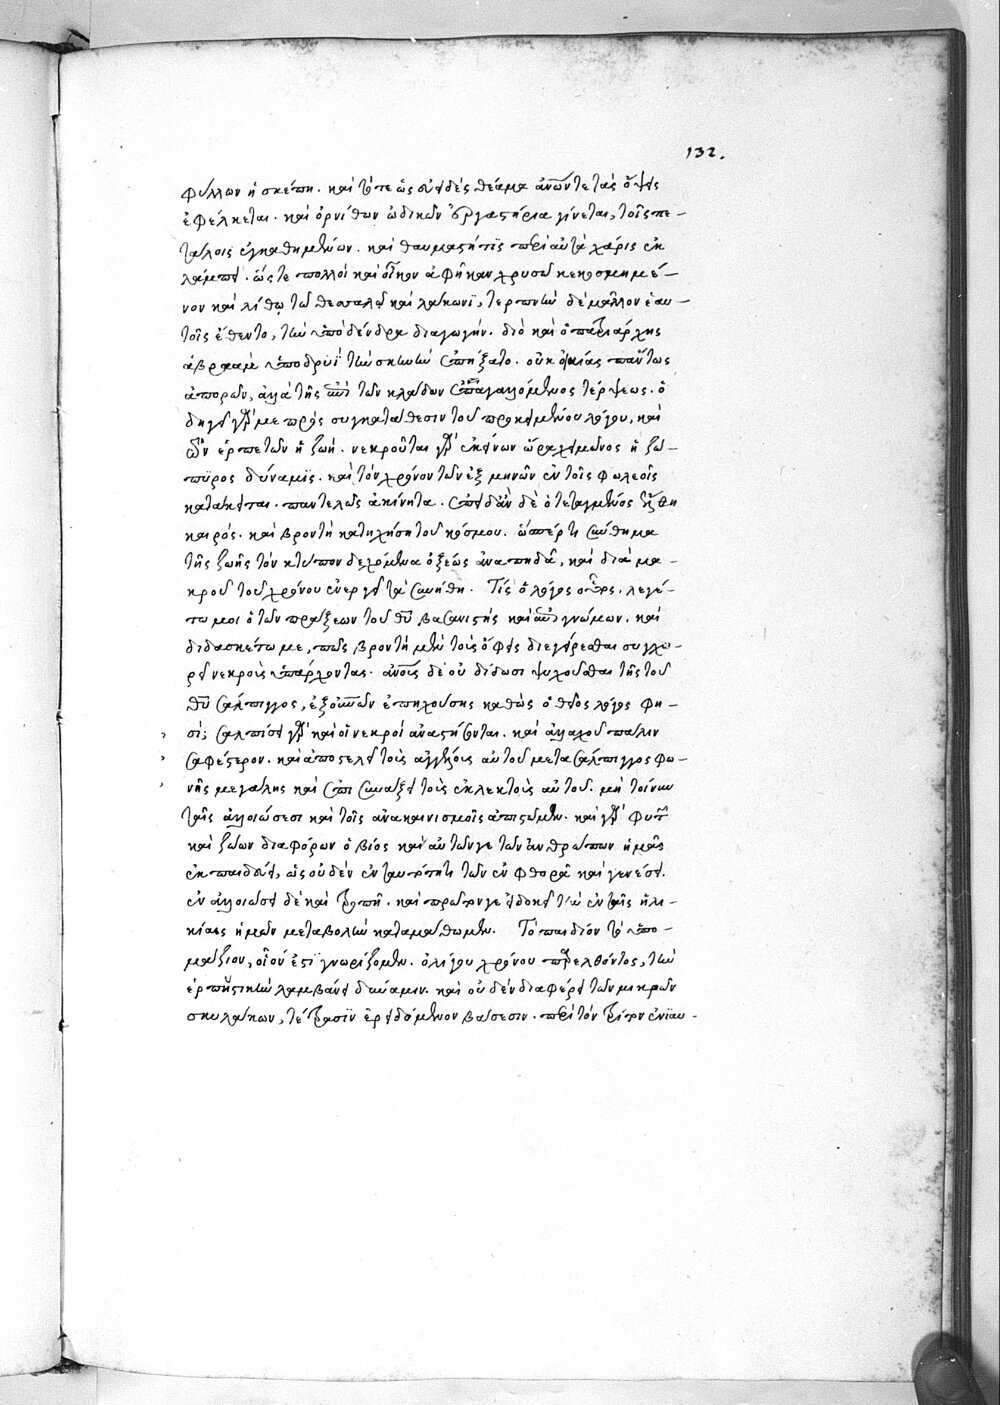 132.
φύλλων ἡ σκέπη. καὶ τότε ὡς εὐειδὲς θέαμα ἀνων τε τὰς ὄψεις
ἐφέλκεται. καὶ ὀρνίθων ὠδικῶν ἐργαστήρια γίνεται, τοῖς πε-
τάλοις ἐγκαθημένων. καὶ θαυμαστή τις περὶ αὐτὰ χάρις ἐκ
λάμπει. ὥς τε πολλοὶ καὶ οἶκον ἀφῆκαν χρυσῶ κεκοσμημέ-
νον καὶ λίθω τῶ θετταλῶ καὶ λάκωνι, τερπνὴν δὲ μᾶλλον ἑαυ-
τοῖς ἔθεντο, τὴν ὑπὸ δένδρα διαγωγήν. διὸ καὶ ὁ πατριάρχης
ἀβραὰμ ὑπὸ δρυῒ τὴν σκηνὴν ἐπήξατο. οὐκ οἰκίας πάντως
ἀπορῶν, ἀλλὰ τῆς ἀπὸ τῶν κλάδων ἐπαγαλλόμενος τέρψεως. ὁ
δηγεῖ γάρ με πρὸς συγκατάθεσιν τοῦ προκειμένου λόγου, καὶ
τῶν ἑρπετῶν ἡ ζωή. νεκροῦται γὰρ ἐκείνων ὥρα χειμῶνος ἡ ζώ-
πυρος δύναμις. καὶ τὸν χρόνον τῶν ἓξ μηνῶν ἐν τοῖς φωλεοῖς
κατάκειται. παντελῶς ἀκίνητα. ἐπειδὰν δὲ ὁ τεταγμένος ἔλθη
καιρός. καὶ βροντὴ κατηχήση τοῦ κόσμου. ὥσπέρ τι σύνθημα
τῆς ζωῆς τὸν κτύπον δεχόμενα ὀξέως ἀναπηδᾶ, καὶ διὰ μα-
κροῦ τοῦ χρόνου ἐνεργεῖ τὰ συνήθη. Τίς ὁ λόγος οὗτος. λεγέ-
τω μοι ὁ τῶν πράξεων τοῦ θυ βασανιστὴς καὶ ἐπιγνώμων. καὶ
διδασκέτω με, πῶς βροντὴ μὲν τοὺς ὄφεις διεγείρεσθαι συγχω-
ρεῖ νεκροὺς ὑπάρχοντας. ἀνοις δὲ οὐ δίδωσι ψυχοῦσθαι τῆς τοῦ
θυ σάλπιγγος, ἐξ οὐνῶν ἐπηχούσης καθὼς ὁ θεῖος λόγος φη-
σί; σαλπίσει γὰρ καὶ οἱ νεκροὶ ἀναστήσονται. καὶ ἀλλαχοῦ πάλιν
σαφέστερον. καὶ ἀποστελεῖ τοὺς ἀγγέλους αὐτοῦ μετὰ σάλπιγγος φω-
νῆς μεγάλης καὶ ἐπισυνάξει τοὺς ἐκλεκτοὺς αὐτοῦ. μὴ τοίνυν
ταῖς ἀλλοιώσεσι καὶ τοῖς ἀνακαινισμοῖς ἀπιστῶμεν. καὶ γὰρ φυτῶν
καὶ ζώων διαφόρων ὁ βίος καὶ αὐτῶν γε τῶν ἀνθρώπων ἡμᾶς
ἐκπαιδεύει, ὡς οὐδὲν ἐν ταυτότητι τῶν ἐν φθορᾶ καὶ γενέσει.
ἐν ἀλλοιώσει δὲ καὶ τροπῆ. καὶ πρῶτόν γε εἰ δοκεῖ τὴν ἐν ταῖς ἡλι-
κίαις ἡμῶν μεταβολὴν καταμάθωμεν. Τὸ παιδίον τὸ ὑπο-
μάζιον, οἷόν ἐστι γνωρίζομεν. ὀλίγου χρόνου παρελθόντος, τὴν
ἑρπηστικὴν λαμβάνει δύναμιν. καὶ οὐδὲν διαφέρει τῶν μικρῶν
σκυλάκων, τέτρασιν ἐρειδόμενον βάσεσιν. περὶ τὸν τρίτον ἐνιαυ-